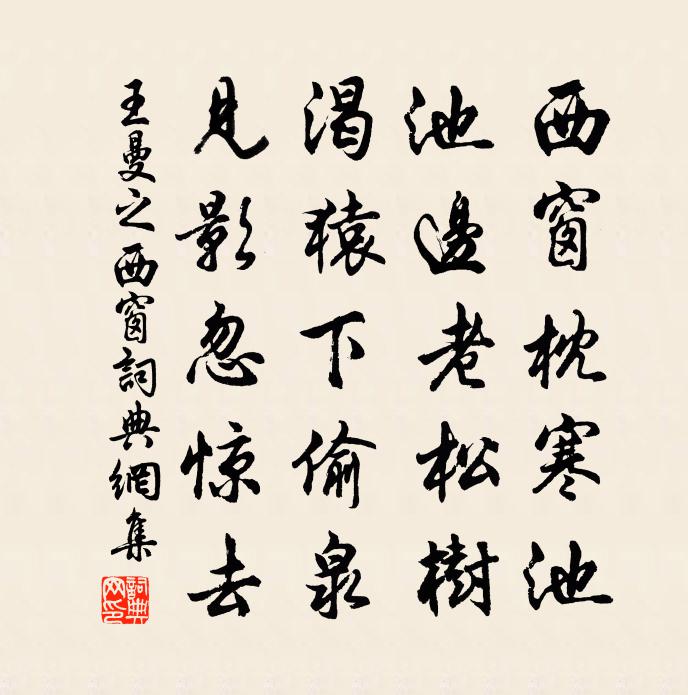 西窗枕寒池
池邊老松樹
渴猿下偷泉
見影忽惊去
王曼之西窗詞典網集
詞典網印